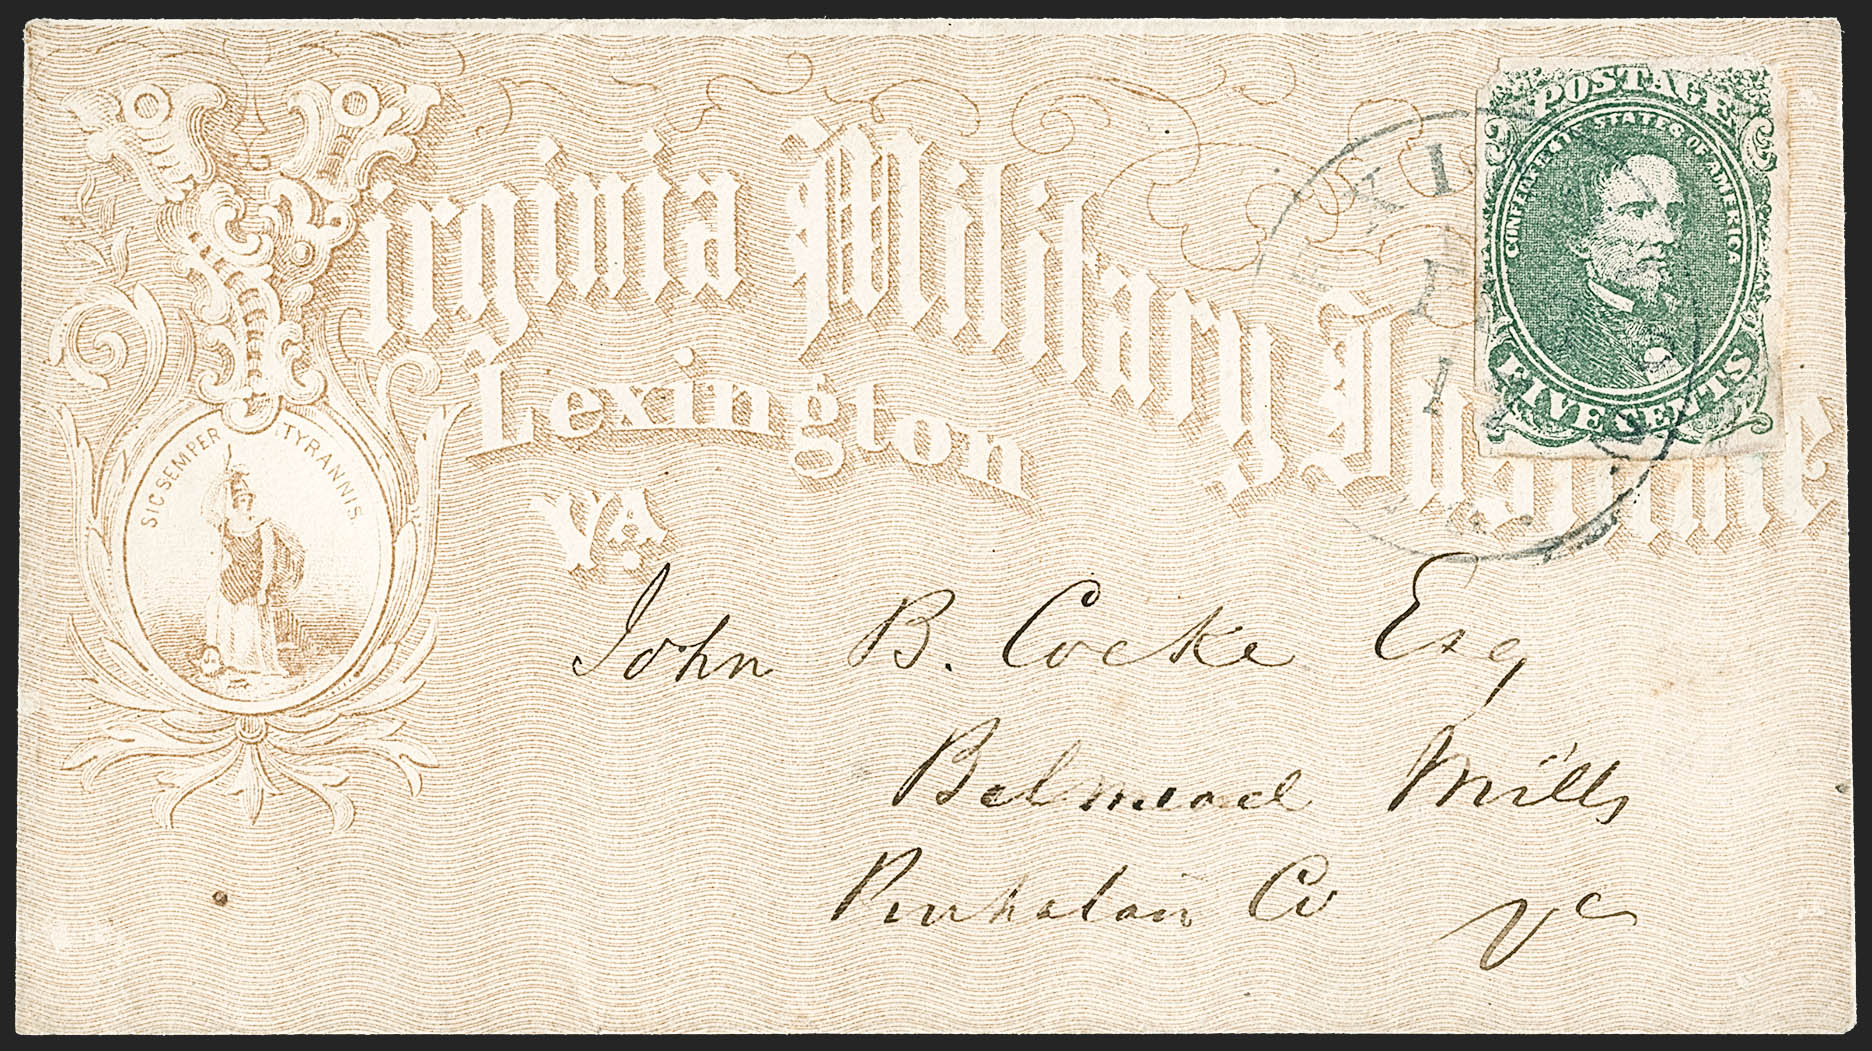 Virginia Military Institute
Lexington
VA.
SIC SEMPER TYRANNIS.
POSTAGE
CONFEDERATE STATES OF AMERICA
FIVE CENTS
John B. Cocke Esq
Belmead Mills
Powhatan Co Va